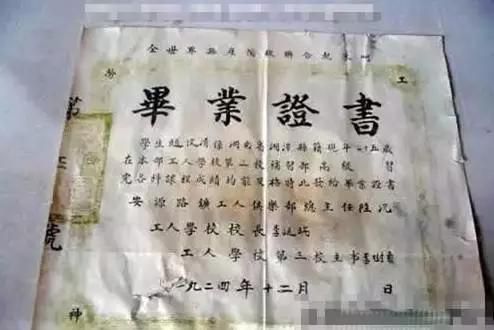 全世界無產階級聯合起來
勞 工
畢業證書
學生趙汶清係湖南省湘潭縣籍現年廿五歲
在本部工人學校第 校補習部高級 習
完各科課程成績均能及格特此發給畢業證書
安源路鑛工人俱樂部總主任陸沉
工人學校校長李延瑞
工人學校第三校主事李樹
一九二四年十二月 日
第 號
神